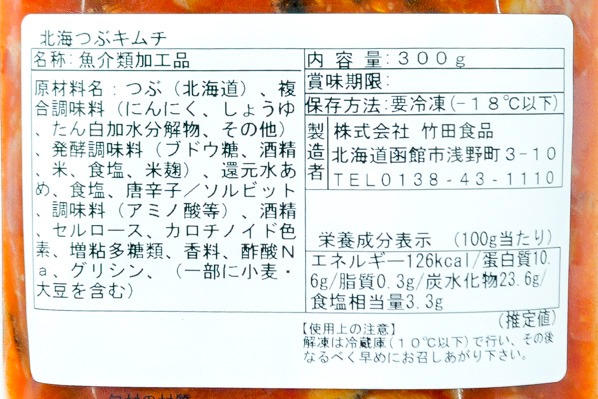 北海つぶキムチ
名称:魚介類加工品
原材料名:つぶ(北海道)、複
合調味料(にんにく、しょうゆ
、たん白加水分解物、その他)
、発酵調味料(ブドウ糖、酒精
、米、食塩、米麹)、還元水あ
め、食塩、唐辛子/ソルビット
、調味料(アミノ酸等)、酒精
、セルロース、カロチノイド色
素、増粘多糖類、香料、酢酸N
a、グリシン、(一部に小麦・
大豆を含む)
内容量:300g
賞味期限:
保存方法:要冷凍(-18℃以下)
製造者
株式会社 竹田食品
北海道函館市浅野町3-10
TEL0138-43-1110
栄養成分表示 (100g当たり)
エネルギー126kcal/蛋白質10.
6g/脂質0.3g/炭水化物23.6g/
食塩相当量3.3g
(推定値)
【使用上の注意】
解凍は冷蔵庫(10℃以下)で行い、その後
なるべく早めにお召しあがり下さい。